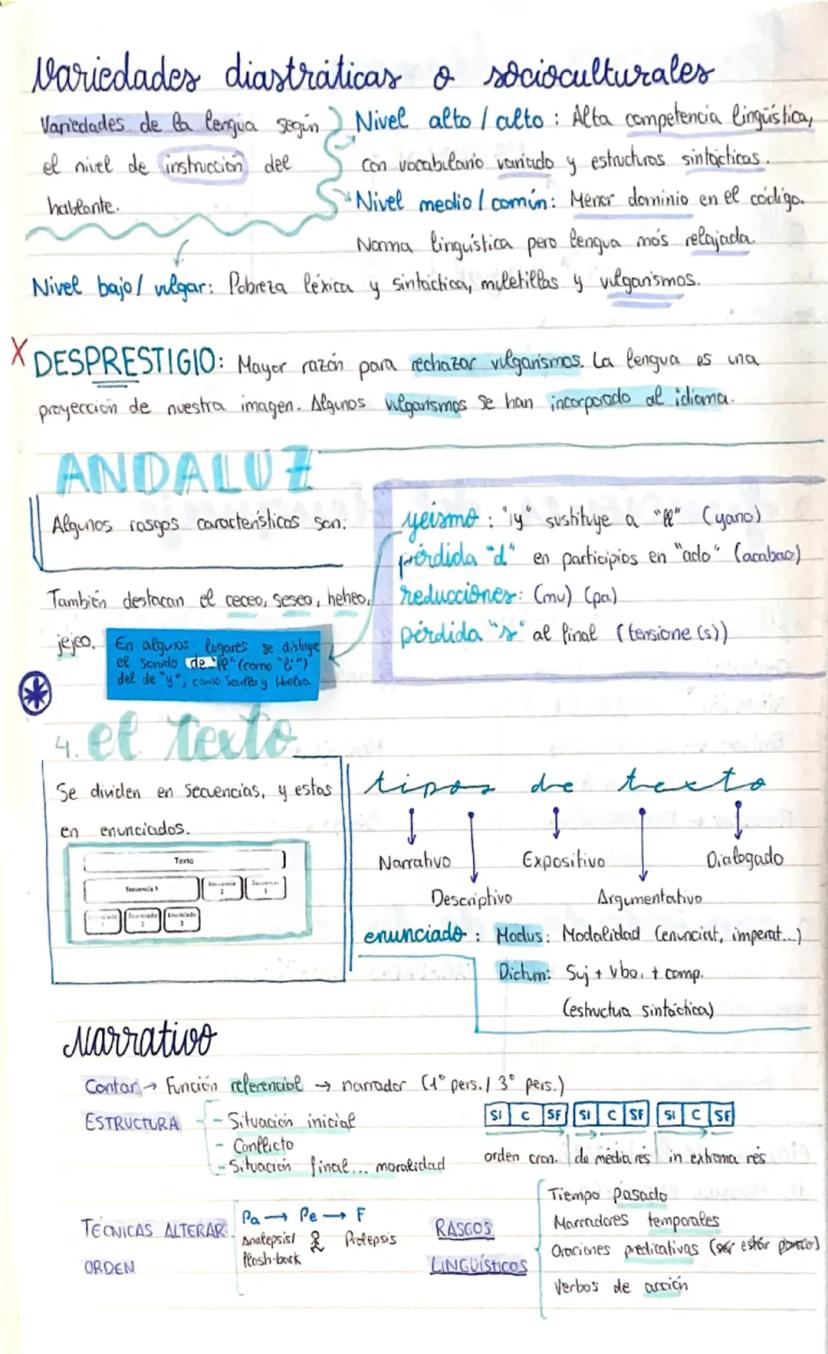 Variedades diastráticas o socioculturales
Variedades de la lengua según
el nivel de instrucción del
hablante.
Nivel alto / culto : Alta competencia lingüística,
con vocabulario variado y estructuras sintácticas.
Nivel medio / común: Menor dominio en el código.
Norma lingüística pero lengua más relajada.
Nivel bajo / vulgar: Pobreza léxica y sintáctica, muletillas y vulgarismos.
X DESPRESTIGIO: Mayor razón para rechazar vulgarismos. La lengua es una
proyección de nuestra imagen. Algunos vulgarismos se han incorporado al idioma.
ANDALUZ
Algunos rasgos característicos son:
yeísmo : "y" sustituye a "ll" (yano)
pérdida "d" en participios en "ado" (acabao)
reducciones: (mu) (pa)
pérdida "s" al final (tensione(s))
También destacan el ceceo, seseo, heheo,
jejeo.
En algunos lugares se distinge
el sonido de "ll" (como "li")
del de "y", como Sevilla y Huelva
4. el texto
Se dividen en secuencias, y estas
en enunciados.
Texto
Secuencia 1
Secuencia 2
Secuencia 3
Enunciado 1
Enunciado 2
Enunciado 3
tipos de texto
Narrativo
Expositivo
Dialogado
Descriptivo
Argumentativo
enunciado : Modus: Modalidad (enunciat, imperat...)
Dictum: Suj + vbo. + comp.
(estructura sintáctica)
Narrativo
Contar → Función referencial → narrador (1º pers. / 3º pers.)
ESTRUCTURA
- Situación inicial
- Conflicto
- Situación final... moralidad
SI C SF SI C SF SI C SF
orden cron. de media rés in extrema rés
TÉCNICAS ALTERAR
ORDEN
Pa → Pe → F
Analepsis/ Prolepsis
flash-back
RASGOS
LINGÜÍSTICOS
Tiempo pasado
Marcadores temporales
Oraciones predicativas (ser estar parecer)
Verbos de acción